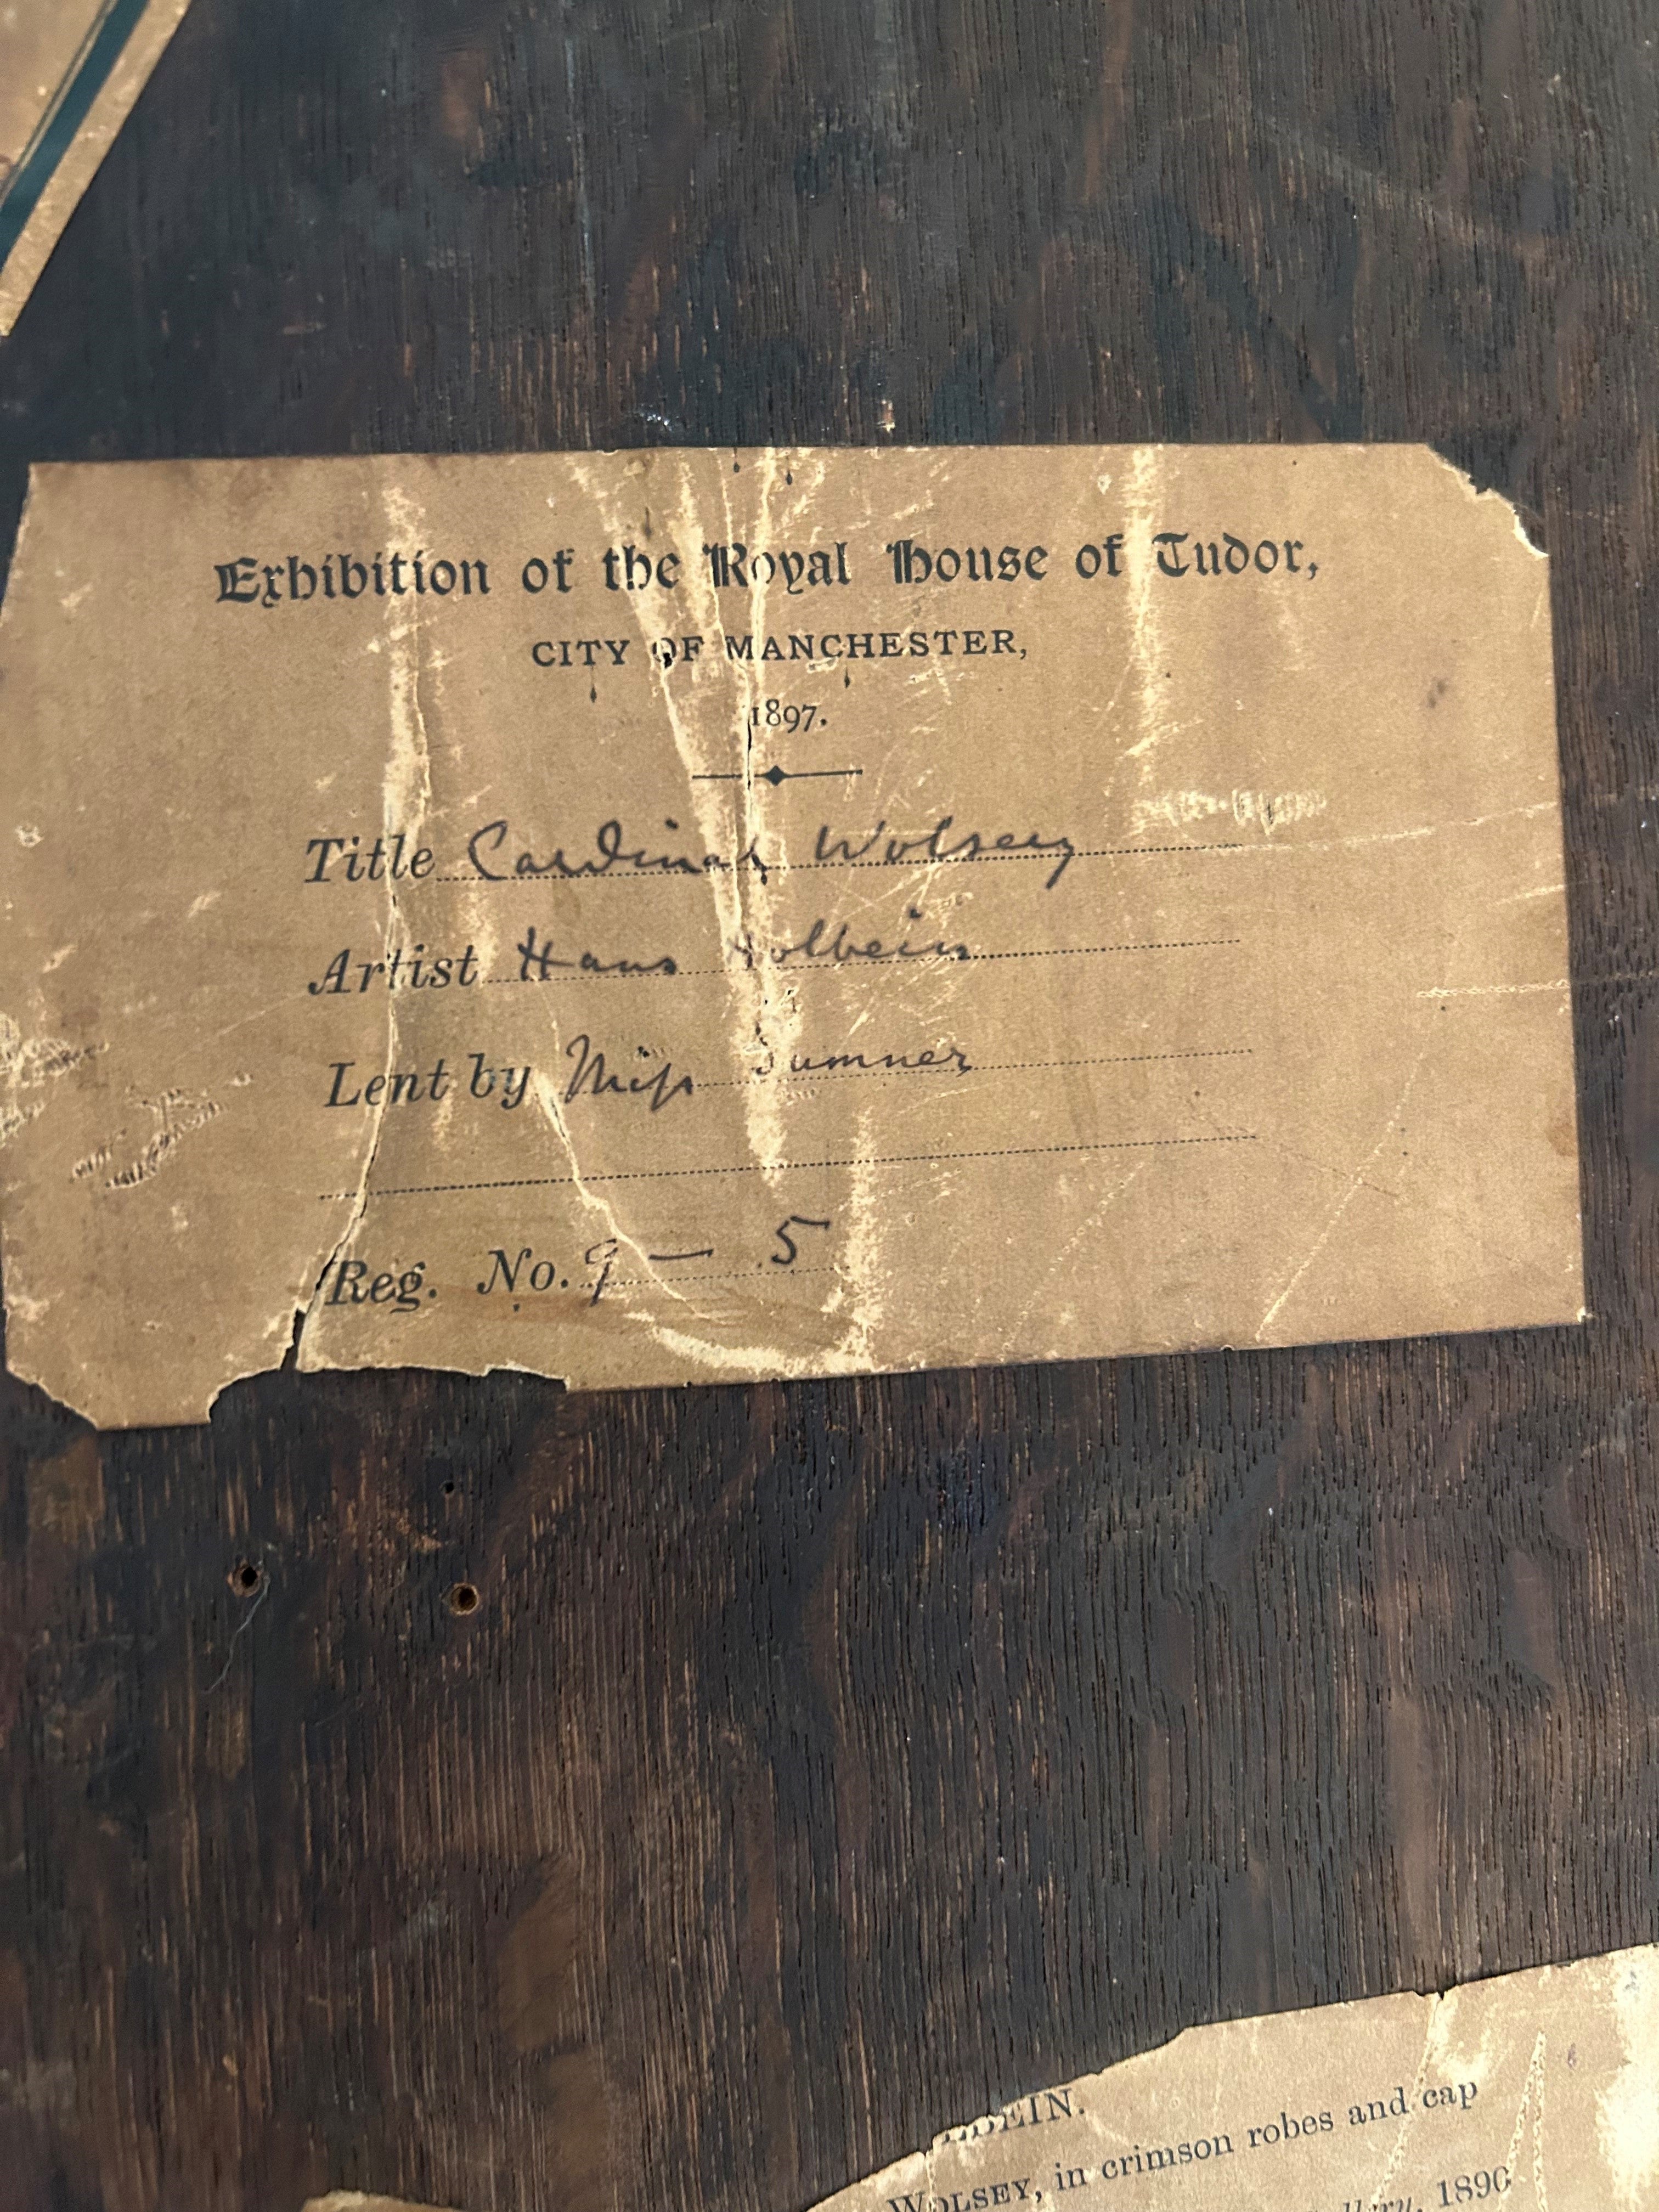 Exhibition of the Royal House of Tudor,
CITY OF MANCHESTER,
1897.
Title Cardinal Wolsey
Artist Hans Holbein
Lent by Miss Sumner
Reg. No. 9 — 5
BEIN.
WOLSEY, in crimson robes and cap
1890